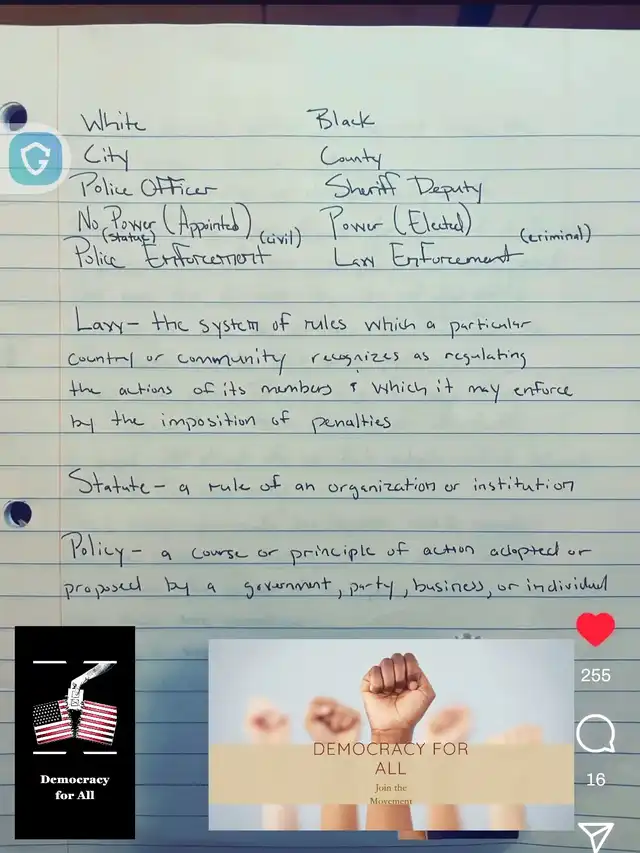 White Black
City County
Police Officer Sheriff Deputy
No Power (Appointed) Power (Elected)
(Statute) (civil) (criminal)
Police Enforcement Law Enforcement
Law – the system of rules which a particular
country or community recognizes as regulating
the actions of its members & which it may enforce
by the imposition of penalties
Statute – a rule of an organization or institution
Policy – a course or principle of action adopted or
proposed by a government, party, business, or individual
Democracy
for All
DEMOCRACY FOR
ALL
Join the
Movement
255
16